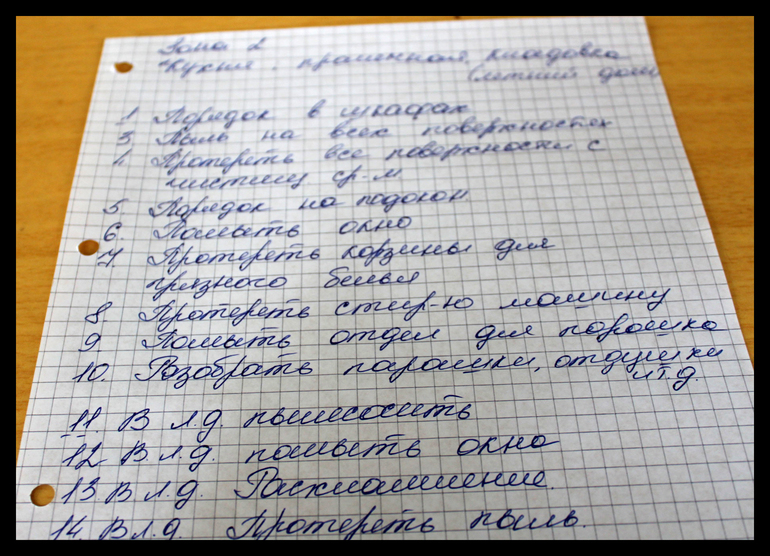 Зона 2
Кухня. прачечная, кладовка
(летний дом)
1 Порядок в шкафах
3 Пыль на всех поверхностях
4 Протереть все поверхности с
чистящ ср-м
5 Порядок на подокон
6. Помыть окно
7 Протереть корзины для
грязного белья
8 Протереть стир-ю машину
9 Помыть отдел для порошка
10. Разобрать парошки, отдушки
и т.д.
11. В л.д. пылисосить
12 В л.д. помыть окно
13 В л.д. Расхламление.
14 В л.д. Протереть пыль.